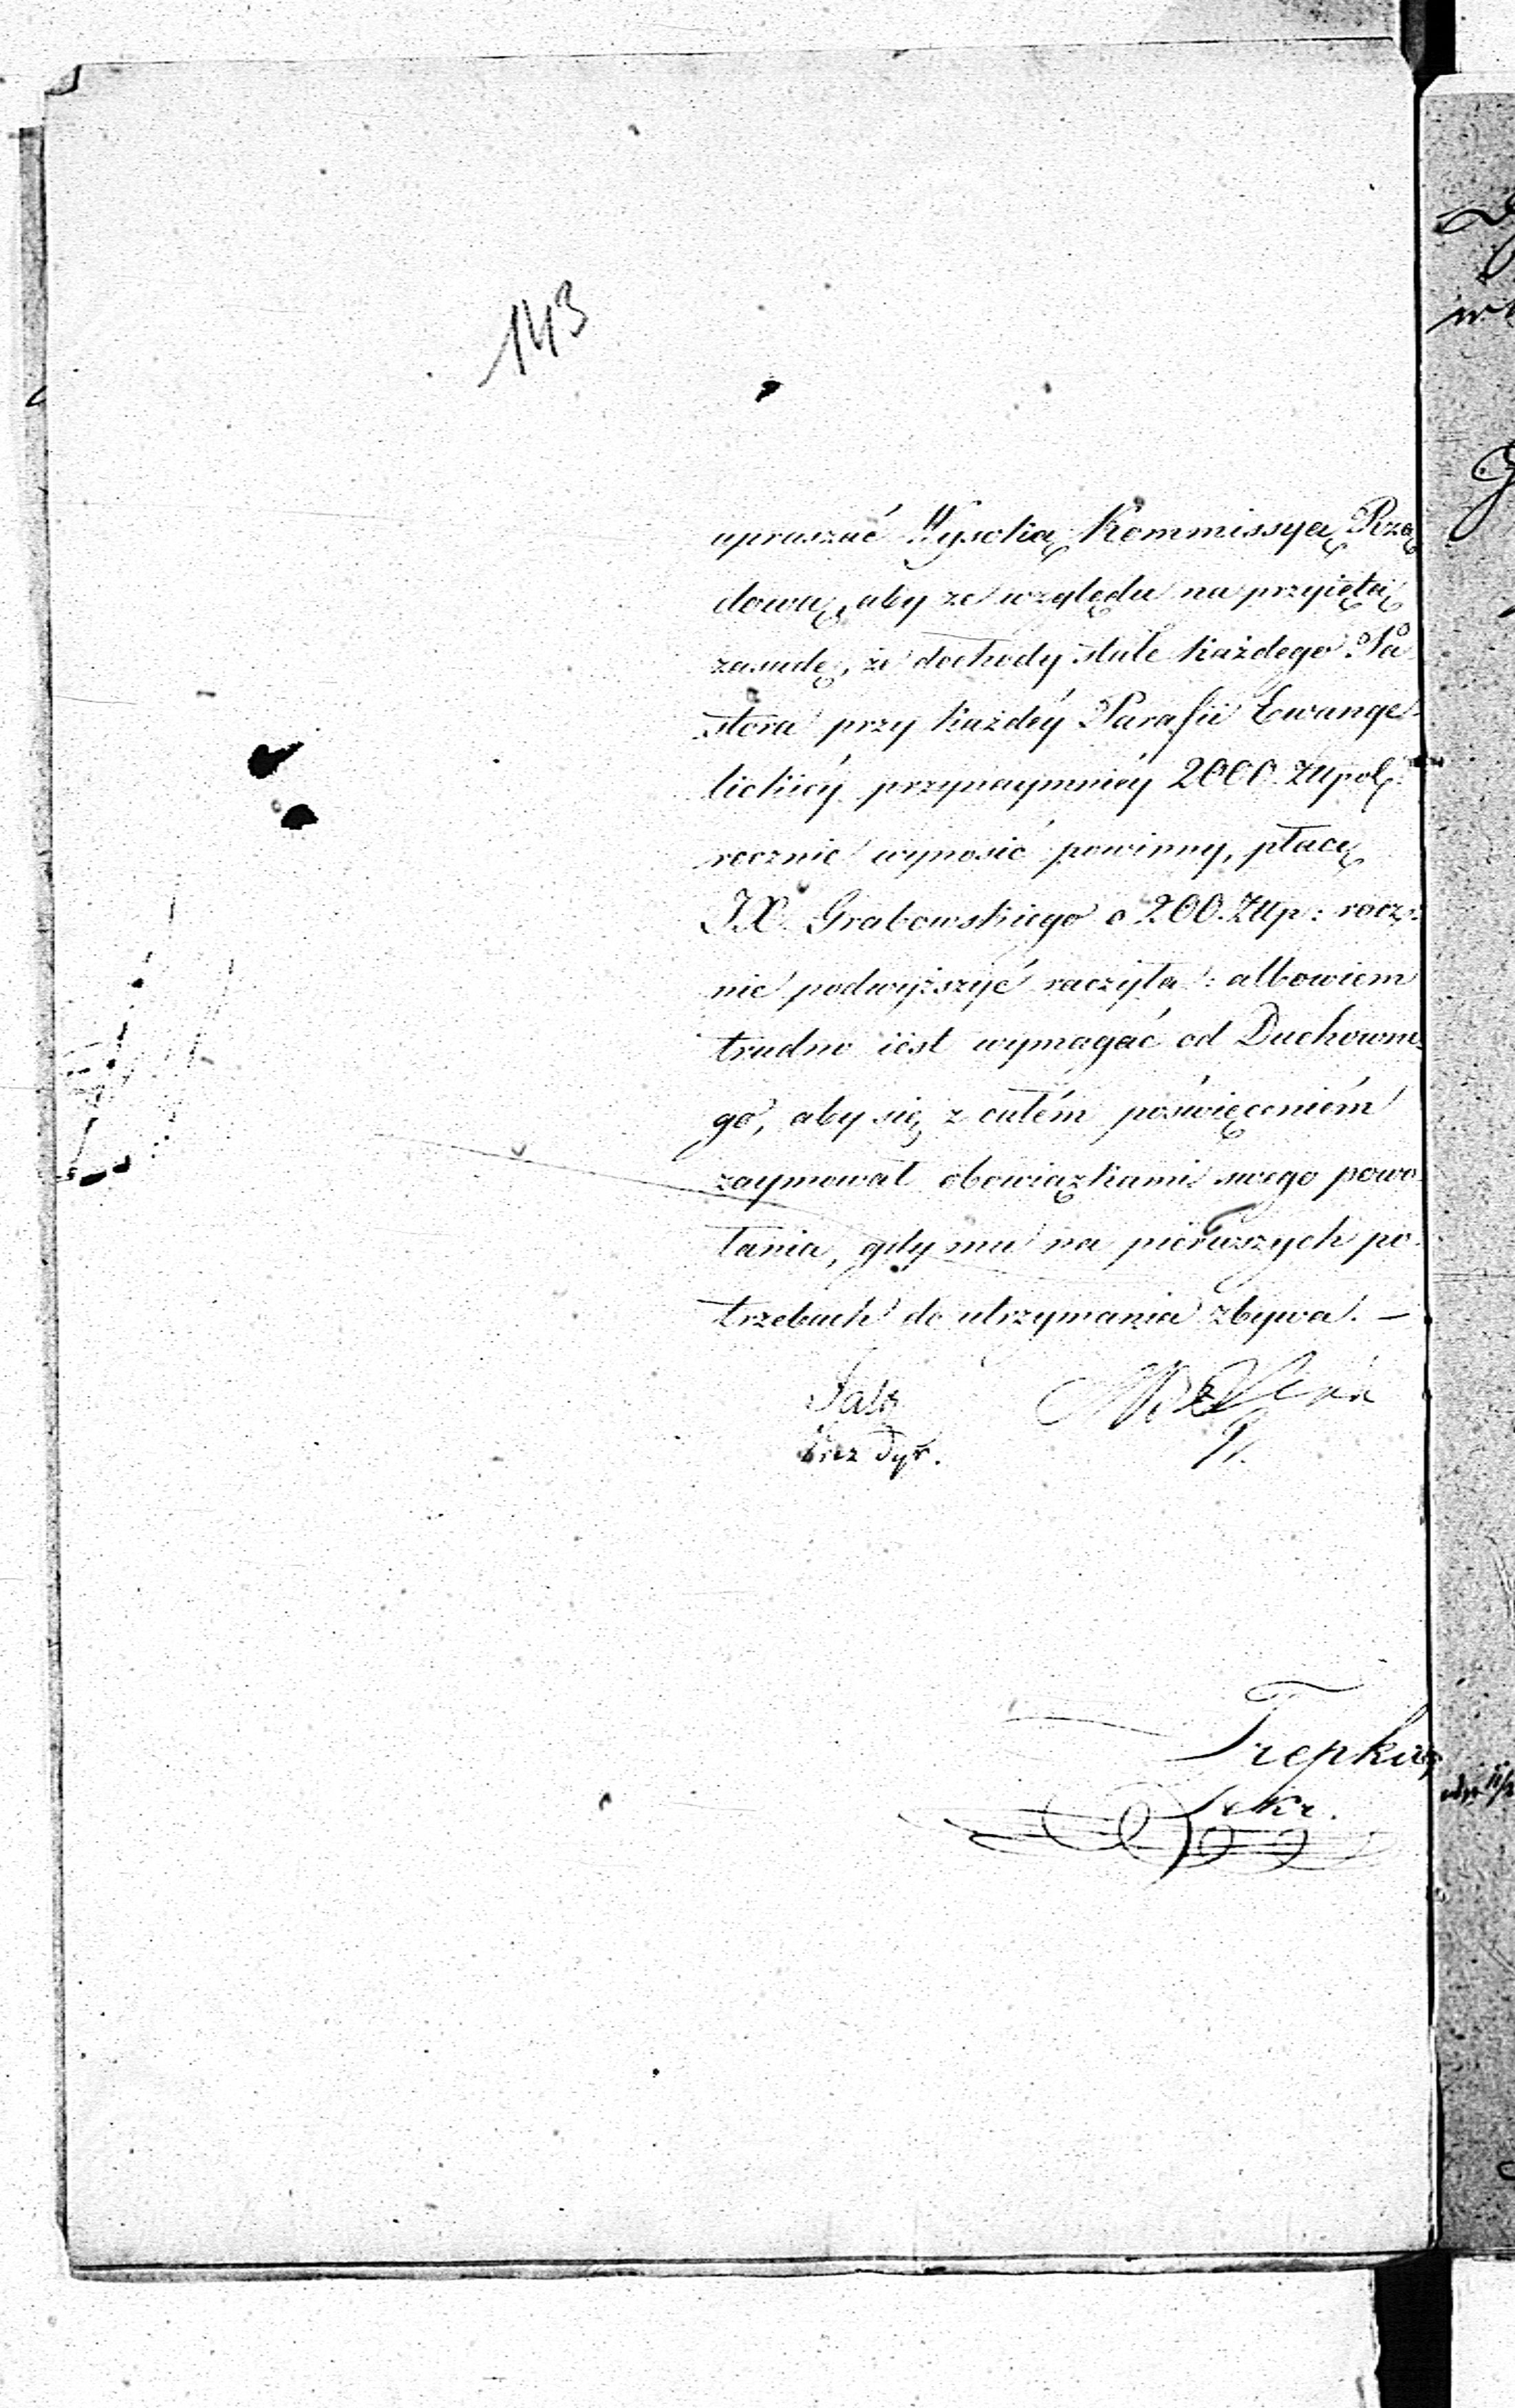 143
upraszać Wysoką Kommissyą Rzą
dową, aby ze względu na przyiętą
zasadę, że dochody stałe każdego Pa
stora przy każdéy Parafii Ewange
lickiéy przynaymniéy 2000 Złpol:
rocznie wynosić powinny, płacę
JX. Grabowskiego o 200. Złp: rocz:
nie podwyższyć raczyła: albowiem
trudno iest wymagać od Duchowne
go, aby się z całém poświęceniém
zaymował obowiązkami swego powo
łania, gdy mu na pierwszych po
trzebach do utrzymania zbywa. —
Dyr.
Trepka
Sekr.